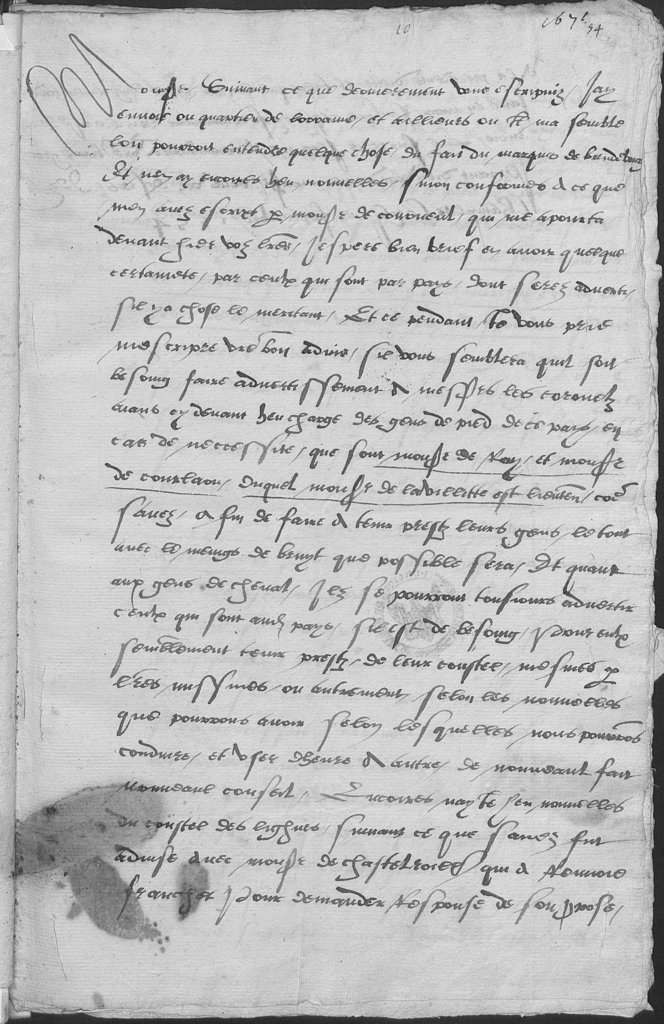 10 167 94
Monsr Suivant ce que dernierement vous escripviz, Jay
envoie ou quartier de lorraine, et ailleurs ou Il ma semble
lon pourroit entendre quelque chose du faict du marquis de brandebourg
Et nen ay encores heu nouvelles sinon conformes a ce que
men avez escript par monsr de que me apourta
devant hier voz lres, Jespere bien brief en avoir quelque
certainete, par ceulx qui sont par pays, dont serez adverti,
sil y a chose le meritant, Et ce pendant Ie vous prie
mescripre vre bon advis, sil vous semblera quil soit
besoing faire advertissement a messrs les coronelz
aians cy devant heu charge des gens de pied de ce pays, en
cas de neccessite, que sont monsr de Ray, et monsr
de courlaou, duquel monsr de lavillette est lieuten, coe
savez, a fin de faire a tenir prestz leurs gens, le tout
avec le meings de bruyt que possible sera, Et quant
aux gens de cheval, Ilz se pourront tousiours advertir
ceulx qui sont audt pays, sil est de besoing, pour eulx
semblement tenir prestz, de leur coustel, mesmes par
lres missives, ou autrement, selon les nouvelles
que pourrons avoir selon lesquelles nous pourrons
conduire, et user dheure a autre, de nouveaul fait
nouveaul conseil, Encoires nay Ie heu nouvelles
du coustel des lighues, suivant ce que savez fut
advise avec monsr de chastelroillaud qui a renvoie
franchet pour demander response de son propose,